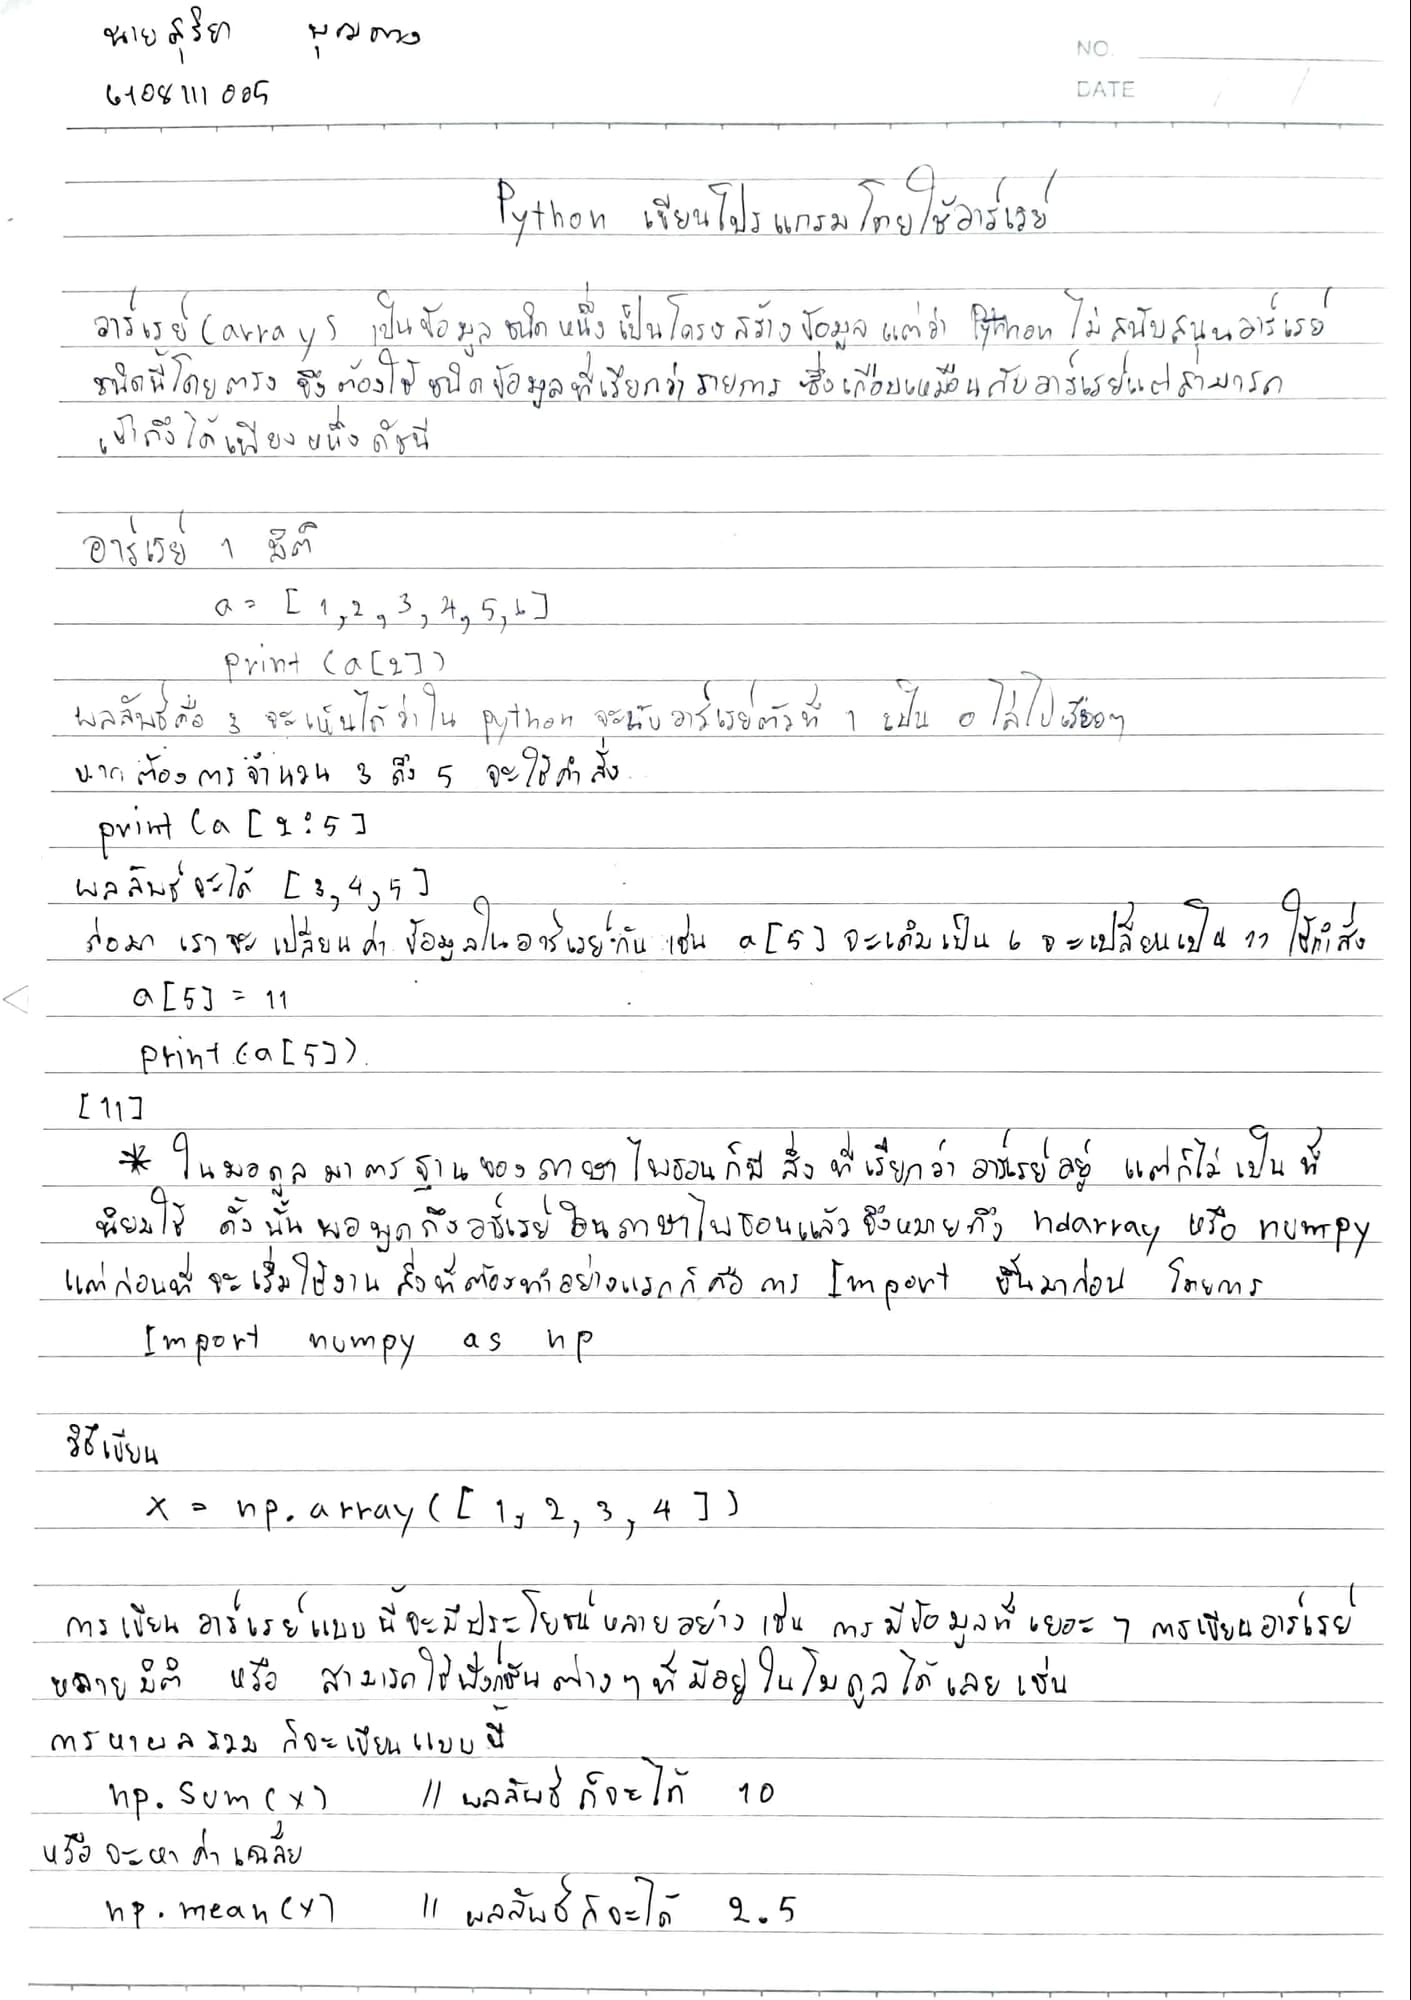 นายสุริยา บุญกาง
6108111005
NO.
DATE / /
Python เขียนโปรแกรมโดยใช้อาร์เรย์
อาร์เรย์ (array) เป็นข้อมูลชนิดหนึ่งเป็นโครงสร้างข้อมูล แต่ว่า Python ไม่สนับสนุนอาร์เรย์
ชนิดนี้โดยตรง จึงต้องใช้ชนิดข้อมูลที่เรียกว่ารายการ ซึ่งเกือบเหมือนกับอาร์เรย์แต่สามารถ
เข้าถึงได้เพียงหนึ่งดัชนี
อาร์เรย์ 1 มิติ
a = [1,2,3,4,5,6]
print (a[2])
ผลลัพธ์คือ 3 จะเห็นได้ว่าใน python จะนับอาร์เรย์ตัวที่ 1 เป็น 0 ไล่ไปเรื่อยๆ
หากต้องการจำนวน 3 ถึง 5 จะใช้คำสั่ง
print (a [2:5]
ผลลัพธ์จะได้ [3,4,5]
ต่อมา เราจะเปลี่ยนค่าข้อมูลในอาร์เรย์กัน เช่น a[5] จะเดิมเป็น 6 จะเปลี่ยนเป็น 11 ใช้คำสั่ง
a[5] = 11
print (a[5]).
[11]
* ในมอดูลมาตรฐานของภาษาไพธอนก็มีสิ่งที่เรียกว่าอาร์เรย์อยู่ แต่ก็ไม่เป็นที่
นิยมใช้ ดั้งนั้นพอพูดถึงอาร์เรย์ในภาษาไพธอนแล้วจึงหมายถึง ndarray หรือ numpy
แต่ก่อนที่จะเริ่มใช้งาน สิ่งที่ต้องทำอย่างแรกก็คือการ Import ขึ้นมาก่อน โดยการ
Import numpy as np
วิธีเขียน
x = np.array([1, 2, 3, 4])
การเขียนอาร์เรย์แบบนี้จะมีประโยชน์หลายอย่าง เช่น การมีข้อมูลที่เยอะๆ การเขียนอาร์เรย์
หลายมิติ หรือ สามารถใช้ฟังก์ชันต่างๆที่มีอยู่ในโมดูลได้เลย เช่น
การหาผลรวม ก็จะเขียนแบบนี้
np.sum(x) // ผลลัพธ์ก็จะได้ 10
หรือจะหาค่าเฉลี่ย
np.mean(x) // ผลลัพธ์ก็จะได้ 2.5